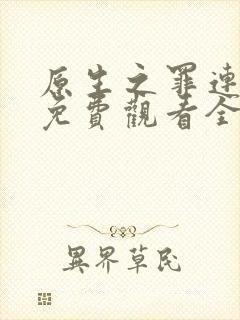 原生之罪連
免費觀看全
異界草民